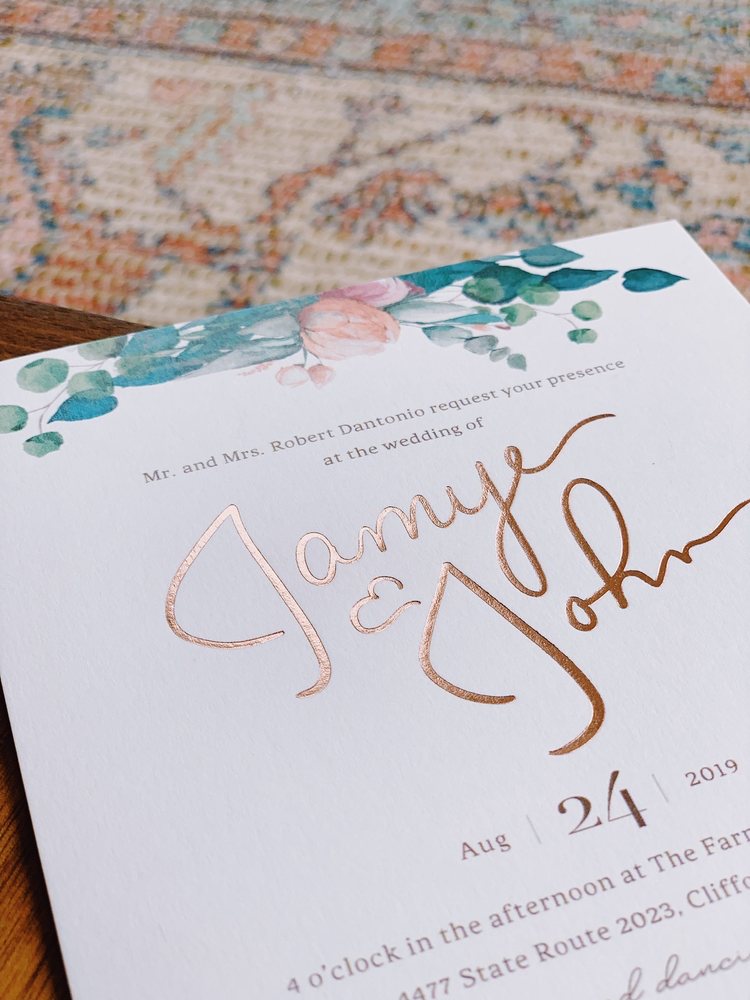 Mr. and Mrs. Robert Dantonio request your presence
at the wedding of
Jamye
&
John
Aug | 24 | 2019
4 o'clock in the afternoon at The
4477 State Route 2023,